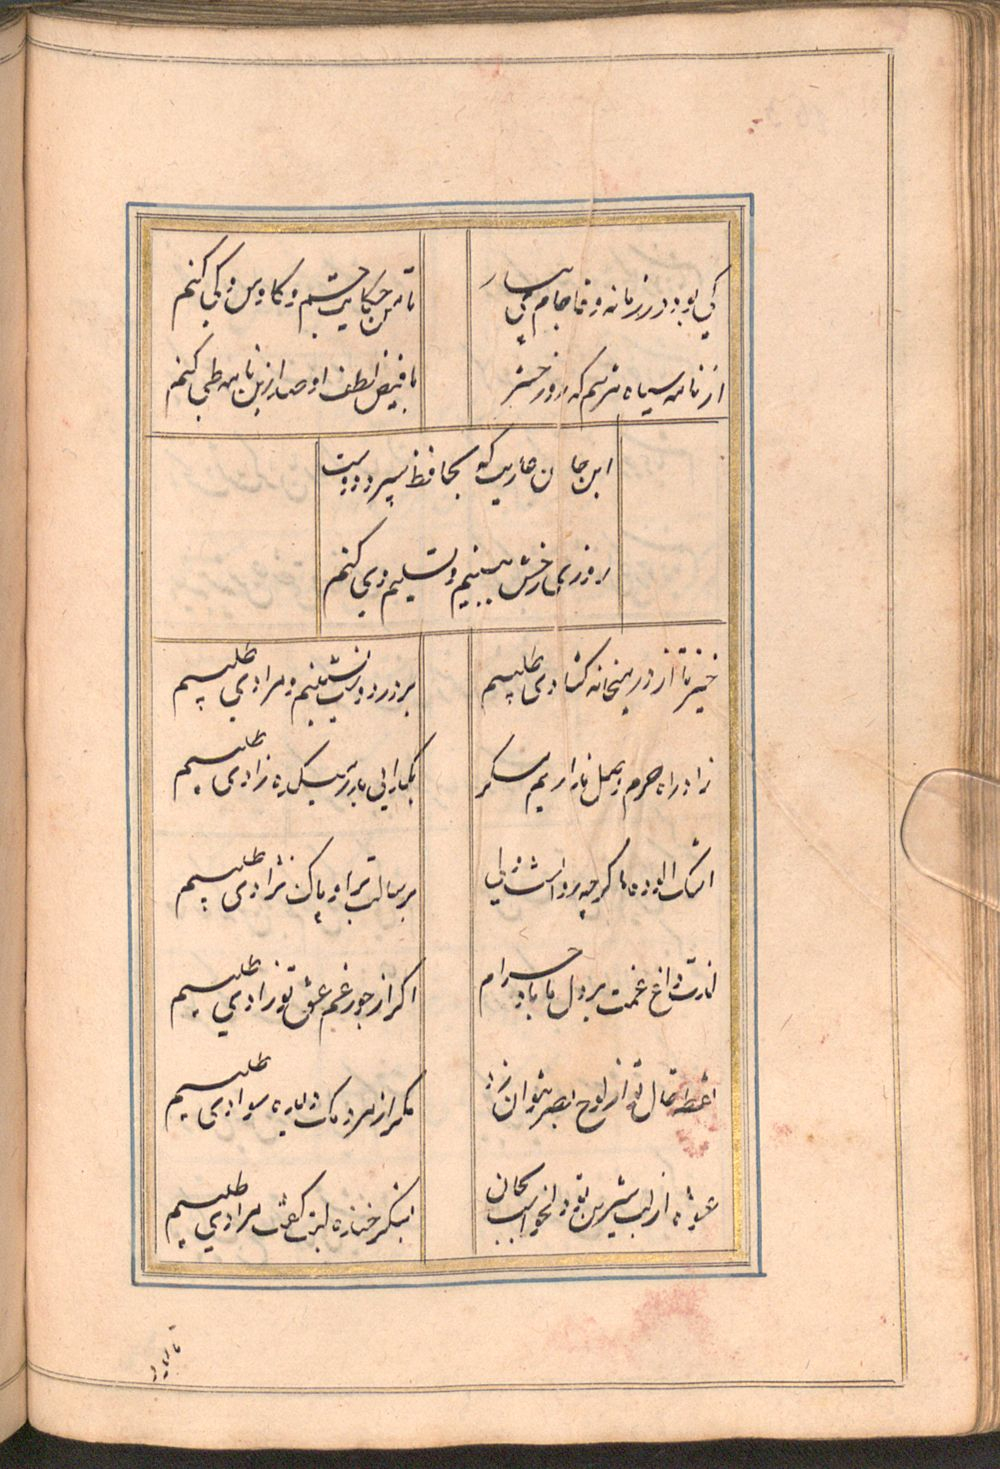 کی بود در زمانه وفا جام می بیار
تا من حکایت جم و کاوس و کی کنم
از نامه سیاه نترسم که روز حشر
با فیض لطف او صد ازین نامه طی کنم
این جان عاریت که بحافظ سپرد دوست
روزی رخش ببینم و تسلیم وی کنم
خیز تا از در میخانه کشادی طلبیم
بر در دوست نشینیم و مرادی طلبیم
زاد راه حرم وصل نداریم مگر
بکدایی ز در میکده زادی طلبیم
اشک الوده ما کرچه روانست ولی
برسالت بر او پاک نژادی طلبیم
لذت داغ غمت بر دل ما باد حرام
اکر از جور غم عشق تو دادی طلبیم
نقطه خال تو از لوح بصر نتوان زد
مکر از مردمک دیده سوادی طلبیم
عشوه از لب شیرین تو دل خواست بجان
بشکر خنده لبت کفت مرادی طلبیم
تا بود